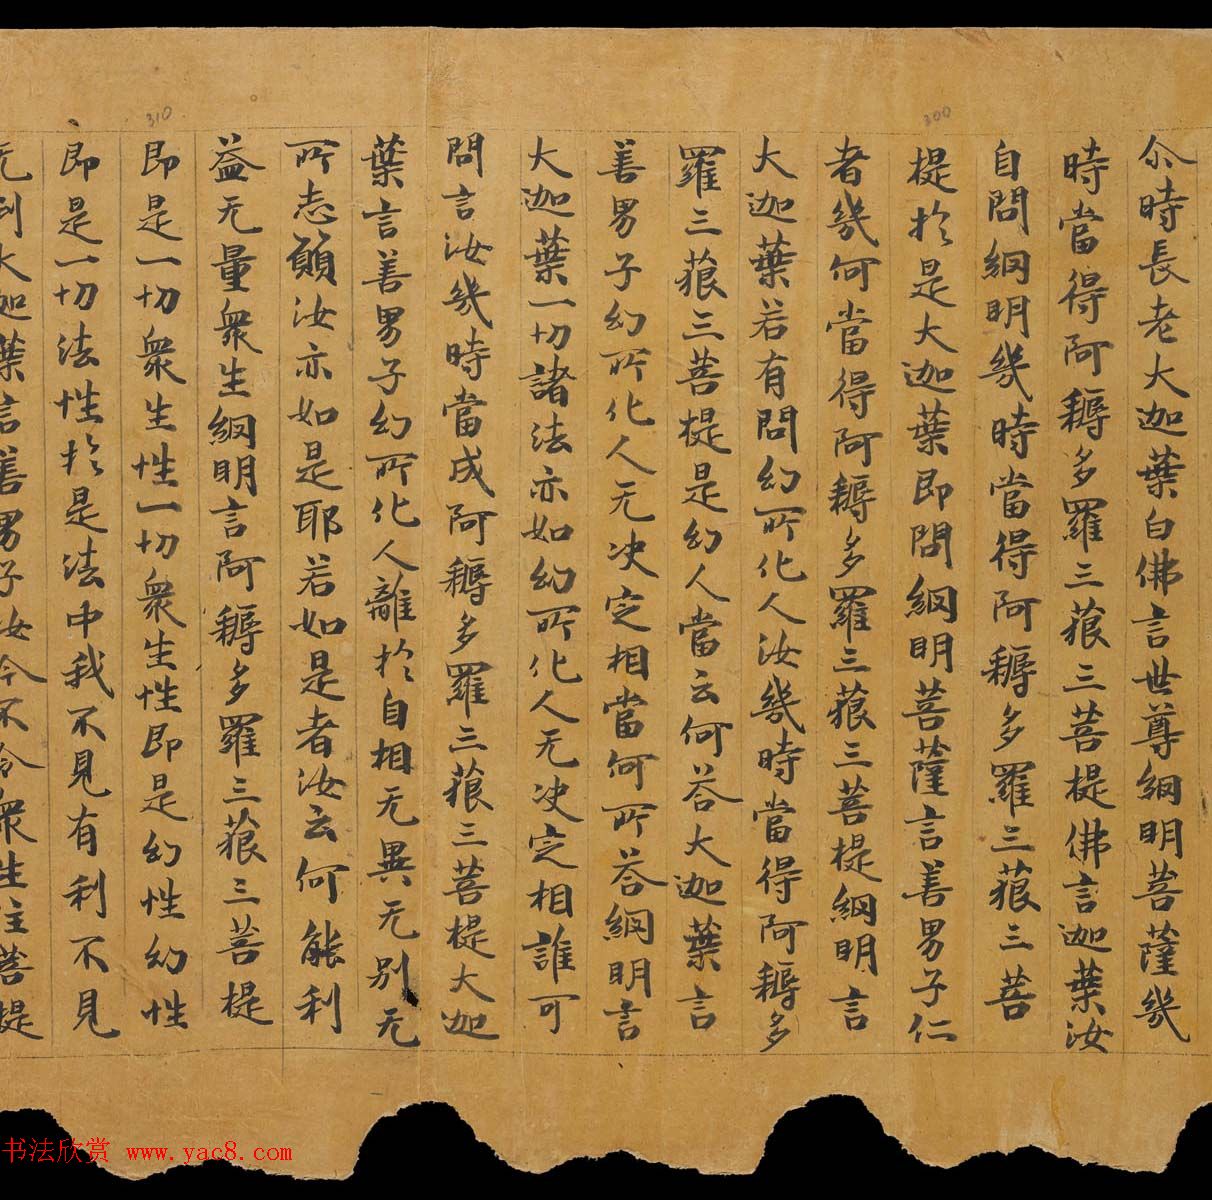 尒時長老大迦葉白佛言世尊網明菩薩幾
時當得阿耨多羅三藐三菩提佛言迦葉汝
自問網明幾時當得阿耨多羅三藐三菩
提於是大迦葉即問網明菩薩言善男子仁
者幾何當得阿耨多羅三藐三菩提網明言
大迦葉若有問幻所化人汝幾時當得阿耨多
羅三藐三菩提是幻人當云何荅大迦葉言
善男子幻所化人无决定相當何所荅網明言
大迦葉一切諸法亦如幻所化人无决定相誰可
問言汝幾時當成阿耨多羅三藐三菩提大迦
葉言善男子幻所化人離於自相无異无別无
所志願汝亦如是耶若如是者汝云何能利
益无量衆生網明言阿耨多羅三藐三菩提
即是一切衆生性一切衆生性即是幻性幻性
即是一切法性於是法中我不見有利不見
无利大迦葉言善男子汝今不令衆生住菩提
300
310
书法欣赏 www.yac8.com